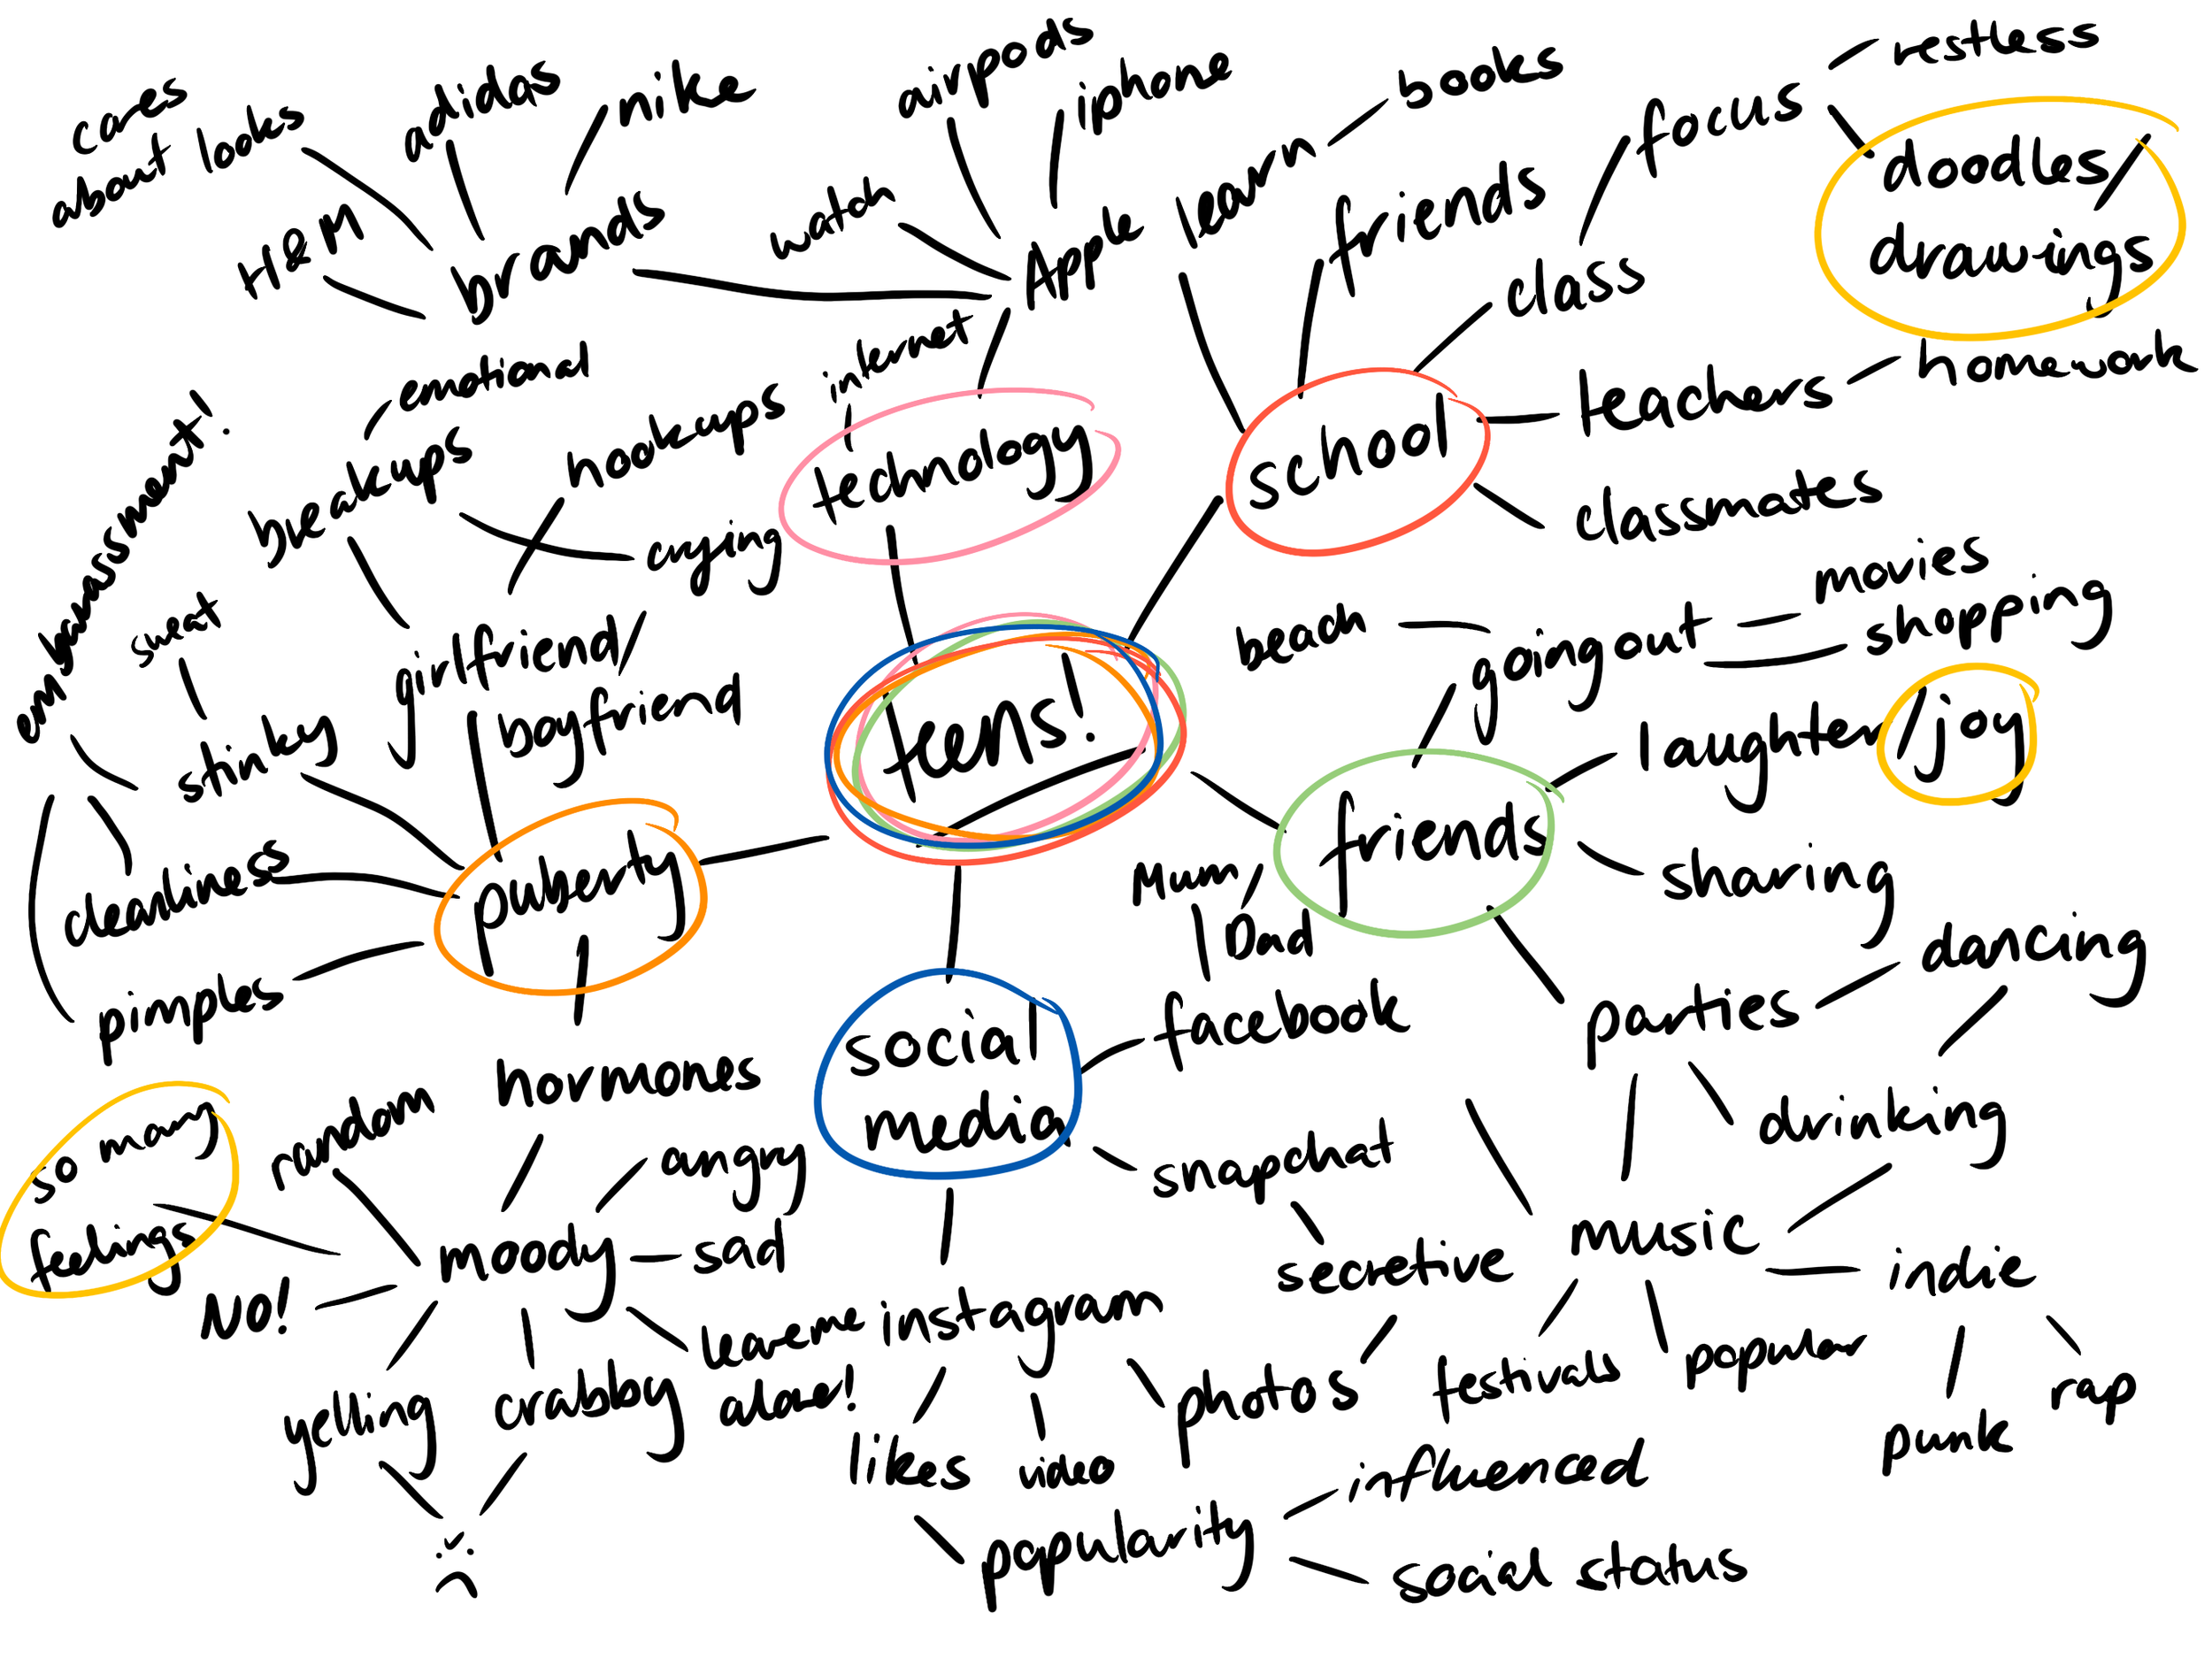 cares
about looks
adidas
nike
H&M
brands
airpods
iphone
watch
Apple
internet
technology
learn
books
friends
class
focus
restless
doodles/
drawings
teachers
homework
school
classmates
emotional
breakups
hookups
crying
girlfriend/
boyfriend
embarrassment!
sweat
stinky
cleanliness
pimples
puberty
teens!
beach
going out
movies
shopping
laughter/joy
friends
sharing
parties
dancing
drinking
music
indie
festivals
popular
punk
rap
Mum/
Dad
social
media
facebook
snapchat
secretive
instagram
likes
video
photos
popularity
influenced
social status
hormones
random
so many
feelings
moody
angry
sad
NO!
yelling
crabby
leave me
alone!